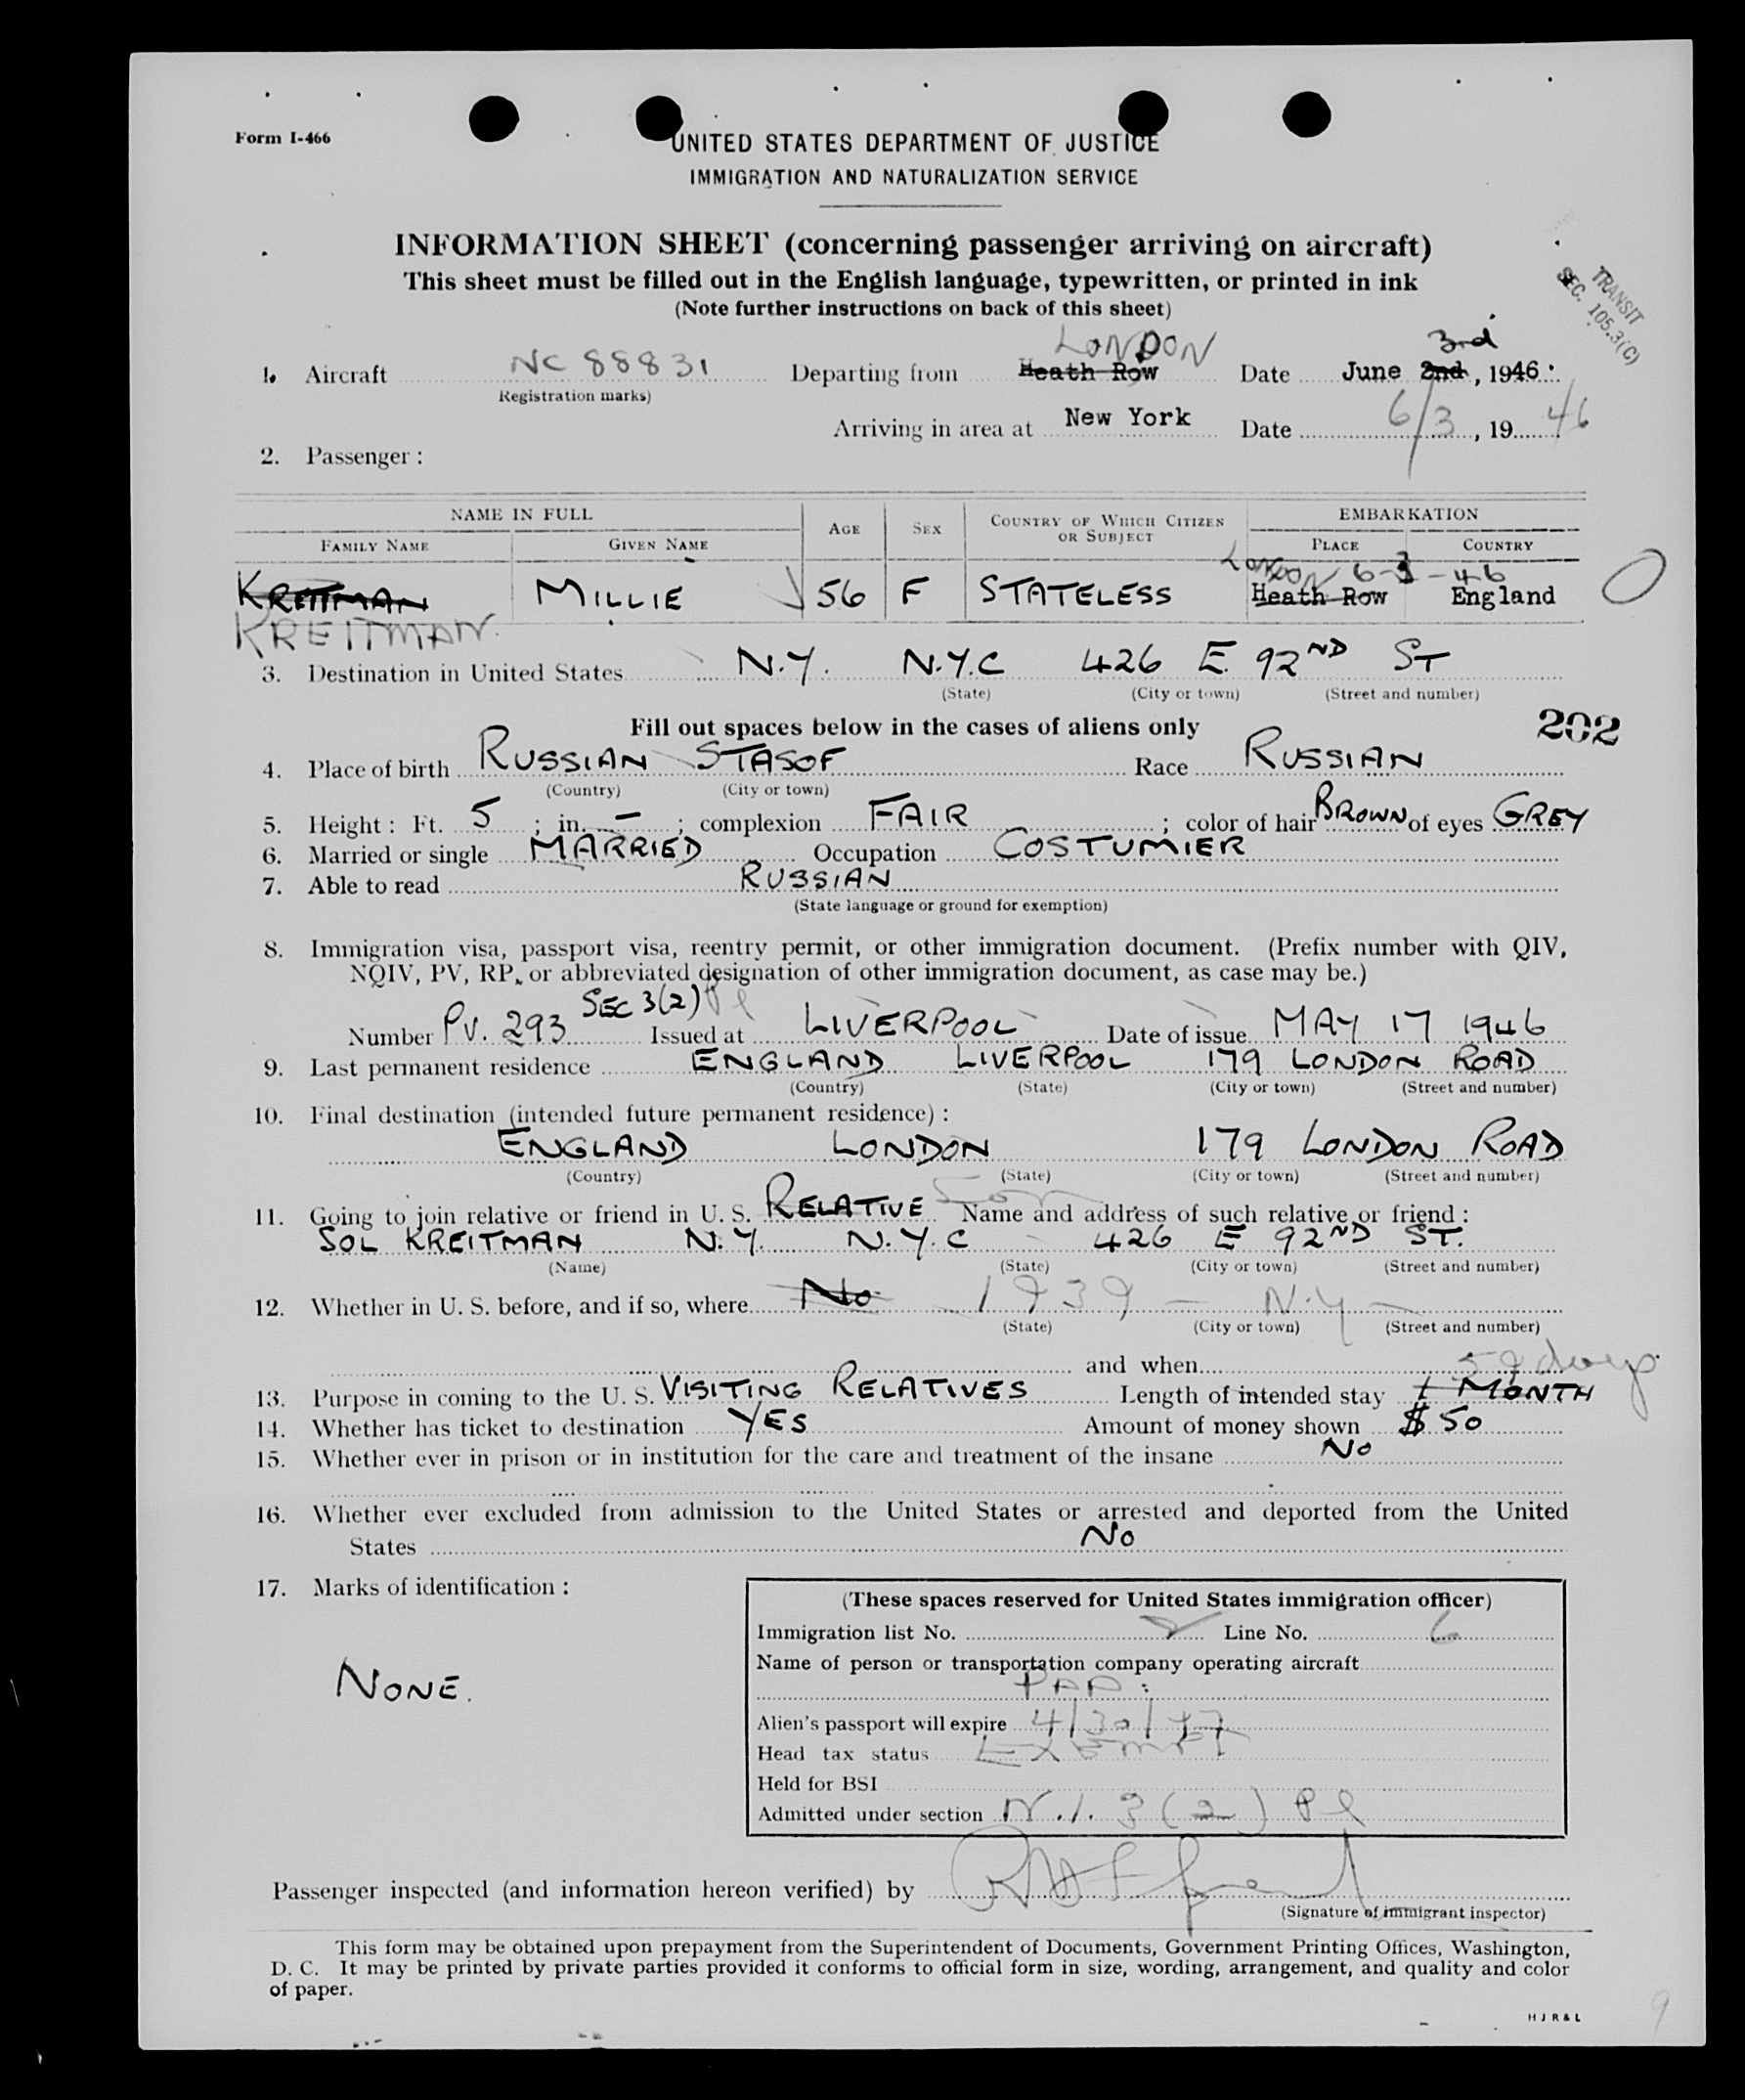 Form I-466
UNITED STATES DEPARTMENT OF JUSTICE
IMMIGRATION AND NATURALIZATION SERVICE
INFORMATION SHEET (concerning passenger arriving on aircraft)
This sheet must be filled out in the English language, typewritten, or printed in ink
(Note further instructions on back of this sheet)
TRANSIT
SEC. 105.3(C)
LONDON 3rd
1. Aircraft NC 88831 Departing from Heath Row Date June 2nd, 1946.
(Registration marks)
Arriving in area at New York Date 6/3, 1946
2. Passenger:
NAME IN FULL AGE SEX COUNTRY OF WHICH CITIZEN OR SUBJECT EMBARKATION
FAMILY NAME GIVEN NAME PLACE COUNTRY
LONDON 6-3-46
KREITMAN MILLIE 56 F STATELESS Heath Row England
KREITMAN.
3. Destination in United States N.Y. N.Y.C 426 E. 92ND ST
(State) (City or town) (Street and number)
Fill out spaces below in the cases of aliens only
202
4. Place of birth RUSSIAN STASOF Race RUSSIAN
(Country) (City or town)
5. Height: Ft. 5; in. –; complexion FAIR; color of hair BROWN of eyes GREY
6. Married or single MARRIED Occupation COSTUMIER
7. Able to read RUSSIAN
(State language or ground for exemption)
8. Immigration visa, passport visa, reentry permit, or other immigration document. (Prefix number with QIV,
NQIV, PV, RP, or abbreviated designation of other immigration document, as case may be.)
SEC 3(2) Pl
Number PV. 293 Issued at LIVERPOOL Date of issue MAY 17 1946
9. Last permanent residence ENGLAND LIVERPOOL 179 LONDON ROAD
(Country) (State) (City or town) (Street and number)
10. Final destination (intended future permanent residence):
ENGLAND LONDON 179 LONDON ROAD
(Country) (State) (City or town) (Street and number)
11. Going to join relative or friend in U. S. RELATIVE Son Name and address of such relative or friend:
SOL KREITMAN N.Y. N.Y.C 426 E 92ND ST.
(Name) (State) (City or town) (Street and number)
12. Whether in U. S. before, and if so, where No 1939 – N.Y –
(State) (City or town) (Street and number)
and when
59 days
13. Purpose in coming to the U. S. VISITING RELATIVES Length of intended stay 1 MONTH
14. Whether has ticket to destination YES Amount of money shown $50
15. Whether ever in prison or in institution for the care and treatment of the insane No
16. Whether ever excluded from admission to the United States or arrested and deported from the United
States No
17. Marks of identification:
NONE.
(These spaces reserved for United States immigration officer)
Immigration list No. 2 Line No. 6
Name of person or transportation company operating aircraft
PAA.
Alien's passport will expire 4/30/47
Head tax status EXEMPT
Held for BSI
Admitted under section N.I. 3(2) Pl
Passenger inspected (and information hereon verified) by
(Signature of immigrant inspector)
This form may be obtained upon prepayment from the Superintendent of Documents, Government Printing Offices, Washington,
D. C. It may be printed by private parties provided it conforms to official form in size, wording, arrangement, and quality and color
of paper.
H J R & L
9